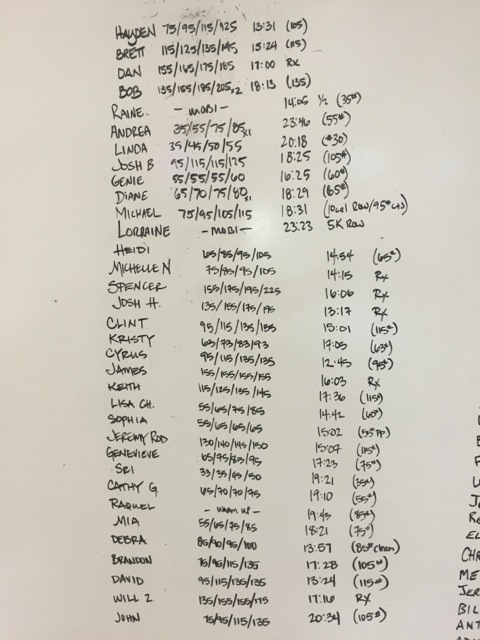 HAYDEN 75/95/115/125 13:31 (105)
BRETT 115/125/135/145 15:24 (115)
DAN 155/165/175/185 17:00 RX
BOB 135/155/185/205x2 18:13 (135)
RAINE - MOBI - 14:05 1/2 (35#)
ANDREA 35/55/75/85x1 23:46 (55#)
LINDA 35/45/50/55 20:18 (#30)
JOSH B 95/115/115/125 18:25 (105#)
GENIE 55/55/55/60 16:25 (60#)
DIANE 65/70/75/80x1 18:29 (65#)
MICHAEL 75/95/105/115 18:31 ROW/95#
LORRAINE - MOBI - 23:23 5K ROW
HEIDI 65/85/95/105 14:54 (65#)
MICHELLE N 75/85/95/105 14:15 RX
SPENCER 155/175/195/225 16:06 RX
JOSH H. 135/155/175/195 13:17 RX
CLINT 95/115/135/155 15:01 (115#)
KRISTY 63/73/83/93 17:05 (63#)
CYRUS 95/115/135/135 12:45 (95#)
JAMES 155/155/155/155 16:03 RX
KEITH 115/125/135/145 17:36 (115#)
LISA CH. 55/65/75/85 14:42 (65#)
SOPHIA 55/65/65/65 15:02 (55# PP)
JEREMY ROD 130/140/145/150 15:07 (115#)
GENEVIEVE 65/75/85/95 17:23 (75#)
SRI 33/35/45/50 19:21 (35#)
CATHY G 65/70/70/75 19:10 (55#)
RAQUEL - WARM UP - 19:43 (85#)
MIA 55/65/75/85 18:21 (75#)
DEBRA 85/90/95/100 13:57 (85# clean)
BRANDON 75/95/115/135 17:28 (105#)
DAVID 95/115/135/135 13:24 (115#)
WILL Z 135/155/155/175 17:16 RX
JOHN 75/95/115/135 20:34 (105#)
EL
CHR
ME
JER
BIL
ANT